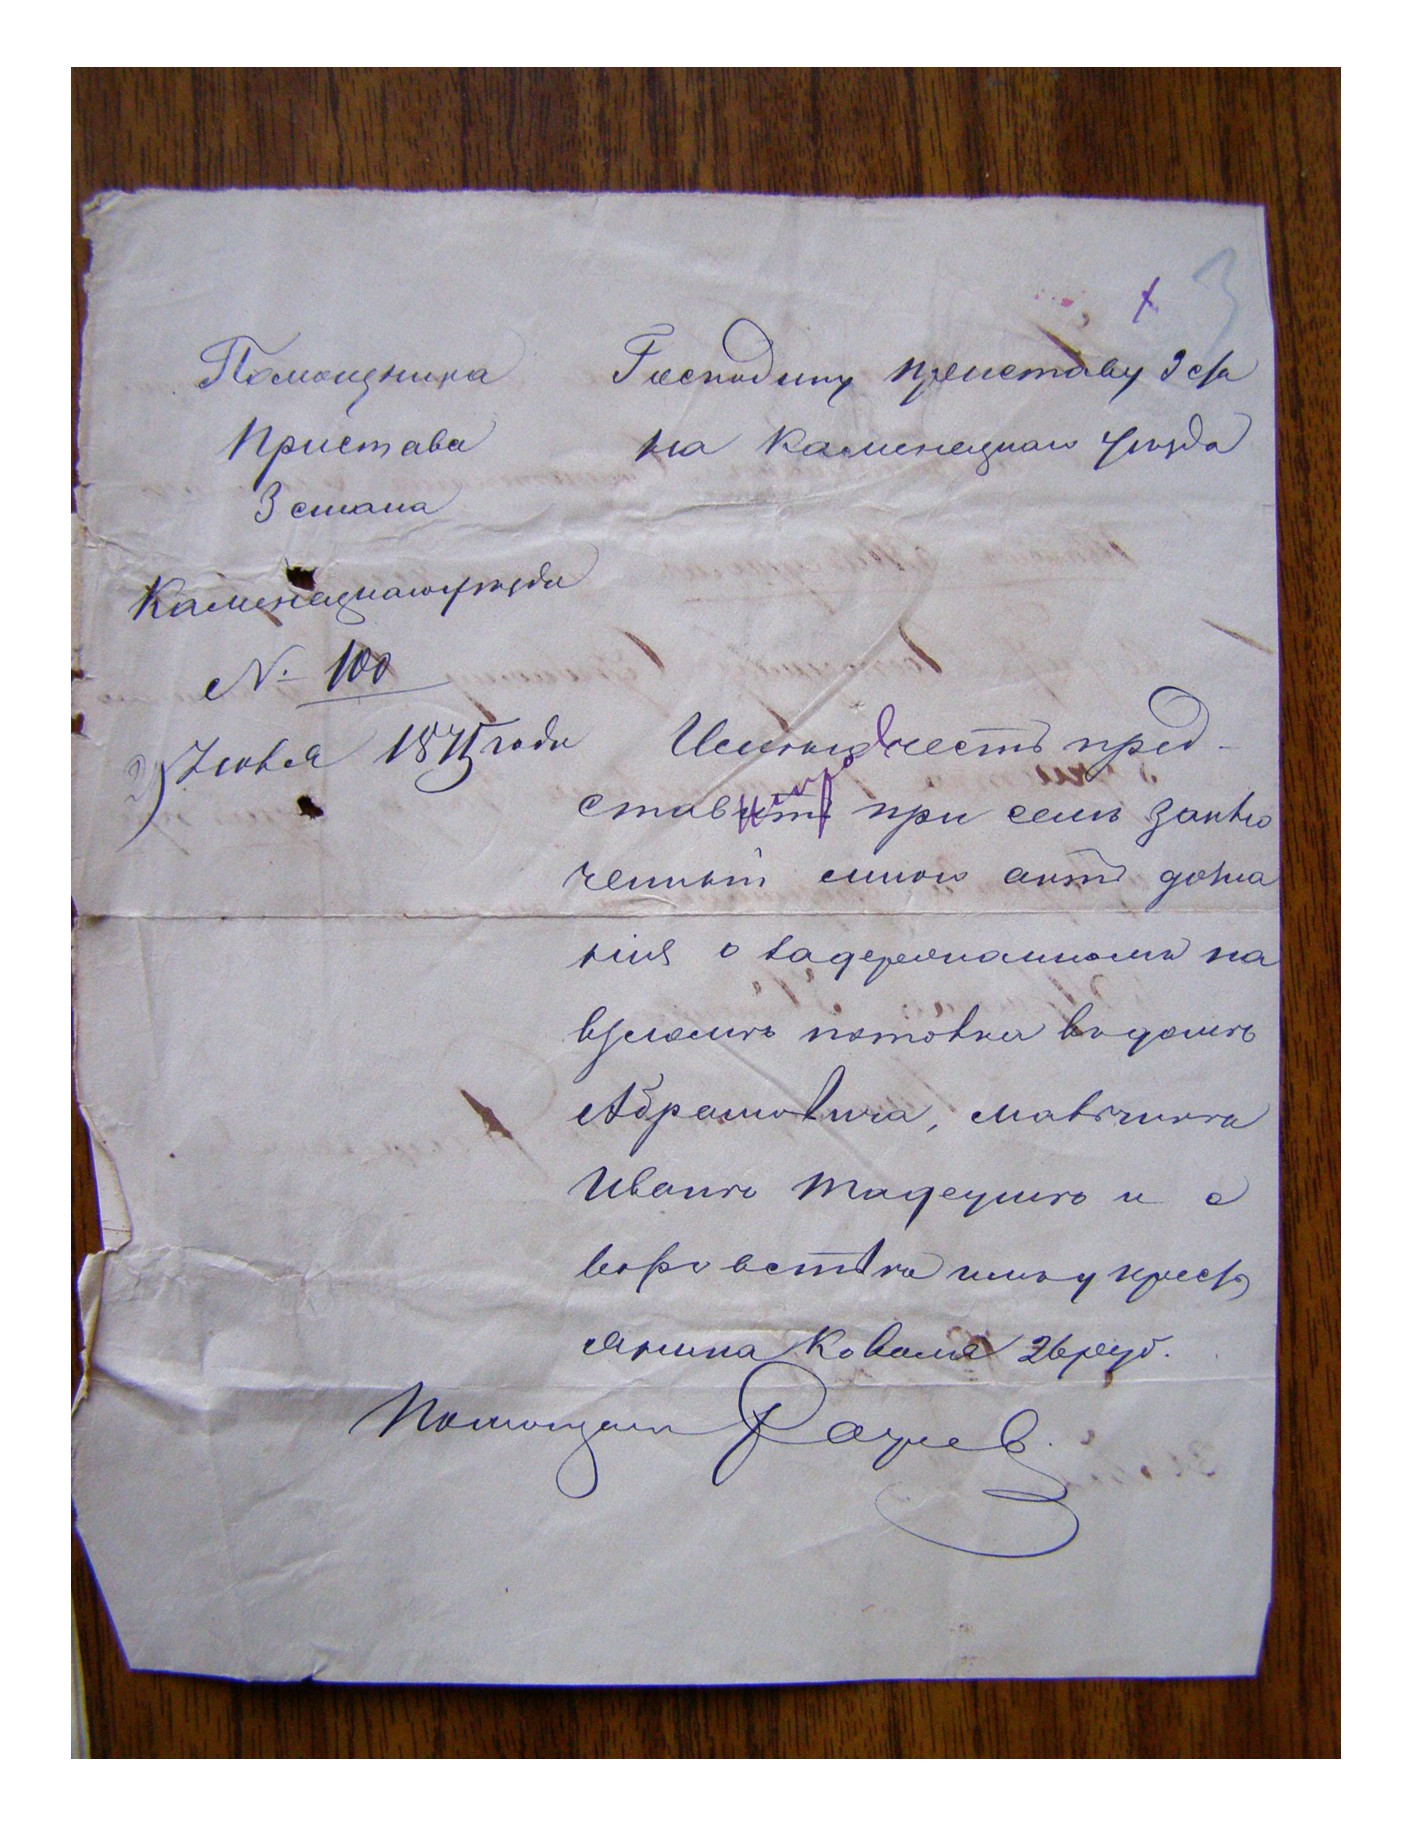 3
Помощника
Пристава
3 стана
Каменецкаго уѣзда
№ 100
Іюля 1875 года
Господину приставу 3 ста
на Каменецкаго уѣзда
честь пред-
став при семъ заклю
ченный мною актъ дозна
нія о задержанномъ на
взломѣ потолка въ домѣ
Абрамовича, мальчика
Ивана Тадеуша и о
воровства имъ у кресть
янина Коваля 26 руб.
Помощникъ